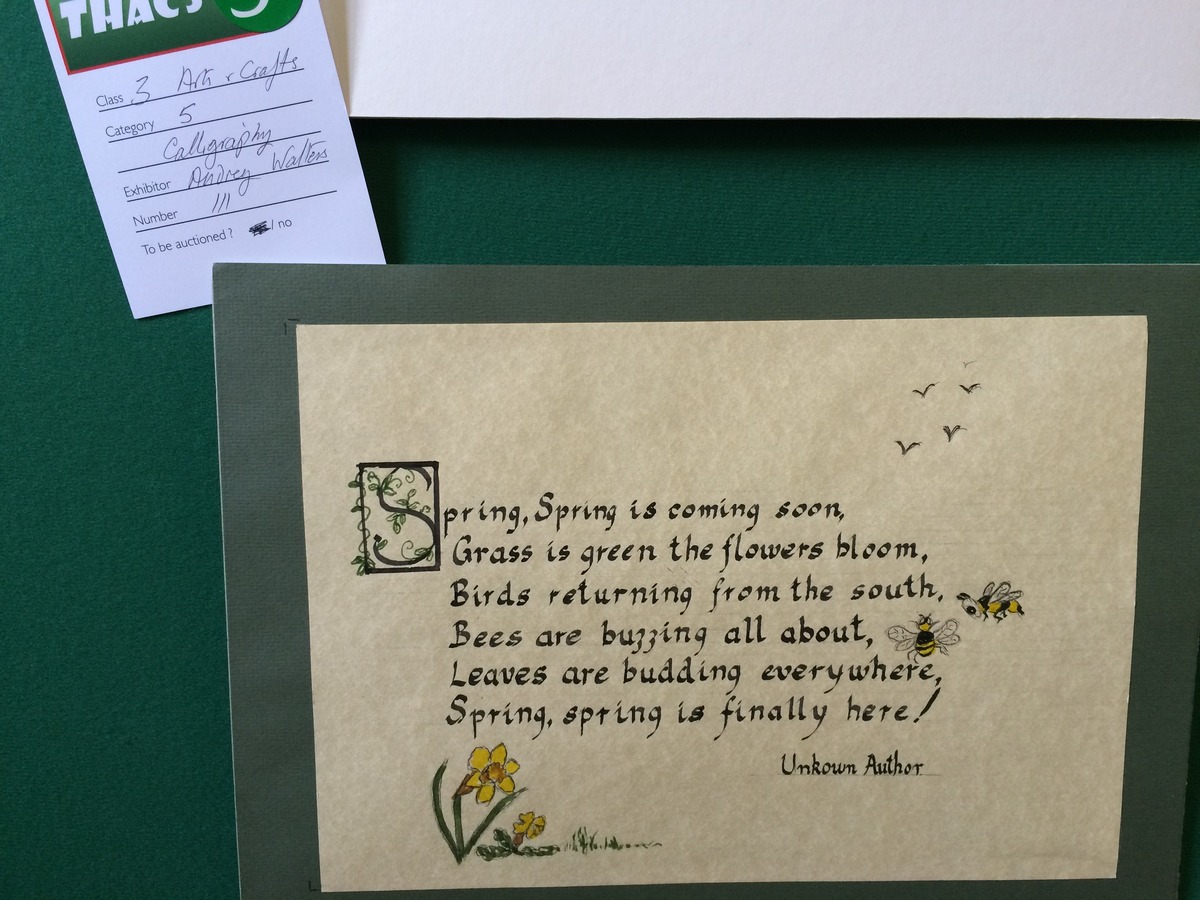 THACS
Class 3 Arts & Crafts
Category 5
Calligraphy
Exhibitor Audrey Walters
Number 111
To be auctioned? / no
Spring, Spring is coming soon,
Grass is green the flowers bloom,
Birds returning from the south,
Bees are buzzing all about,
Leaves are budding everywhere,
Spring, spring is finally here!
Unkown Author